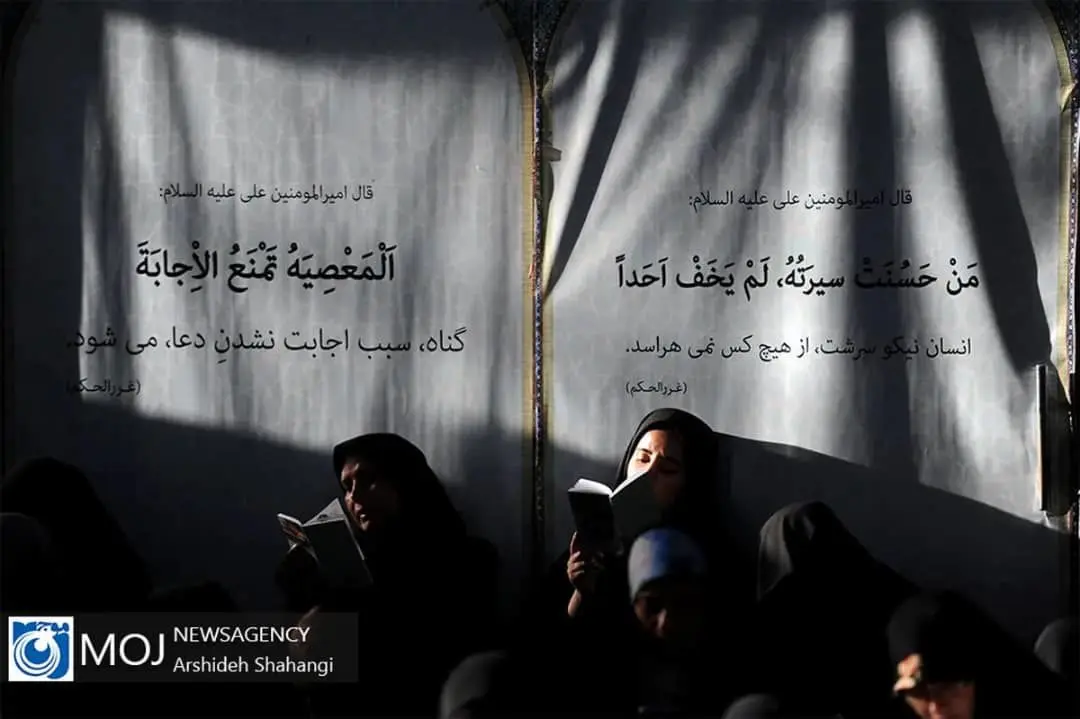 قال امیرالمومنین علی علیه السلام:
مَنْ حَسُنَتْ سیرَتُهُ، لَمْ یَخَفْ اَحَداً
انسان نیکو سرشت، از هیچ کس نمی هراسد.
(غررالحکم)
قال امیرالمومنین علی علیه السلام:
اَلْمَعْصِیَهُ تَمْنَعُ الاِْجابَةَ
گناه، سبب اجابت نشدنِ دعا، می شود.
(غررالحکم)
موج
MOJ
NEWSAGENCY
Arshideh Shahangi